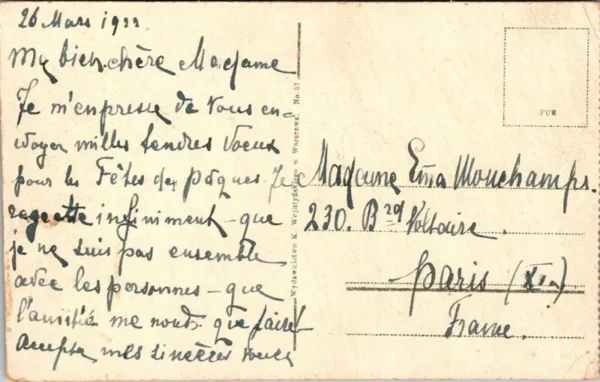 26 Mars 1922
Ma bien chère Madame
Je m'enpresse de vous en-
voyer milles tendres voeux
pour les Fêtes des pâques. Je
regrette infiniment - que
je ne suis pas ensemble
avec les personnes - que
l'amitié me nouds que faire!
mes sincères voeux
Wydawnictwo K. Wojutyńskiego w Warszawie. No. 57
PUM
Madame Ema Mouchamps.
230. Bard Voltaire
Paris (XIe)
France.